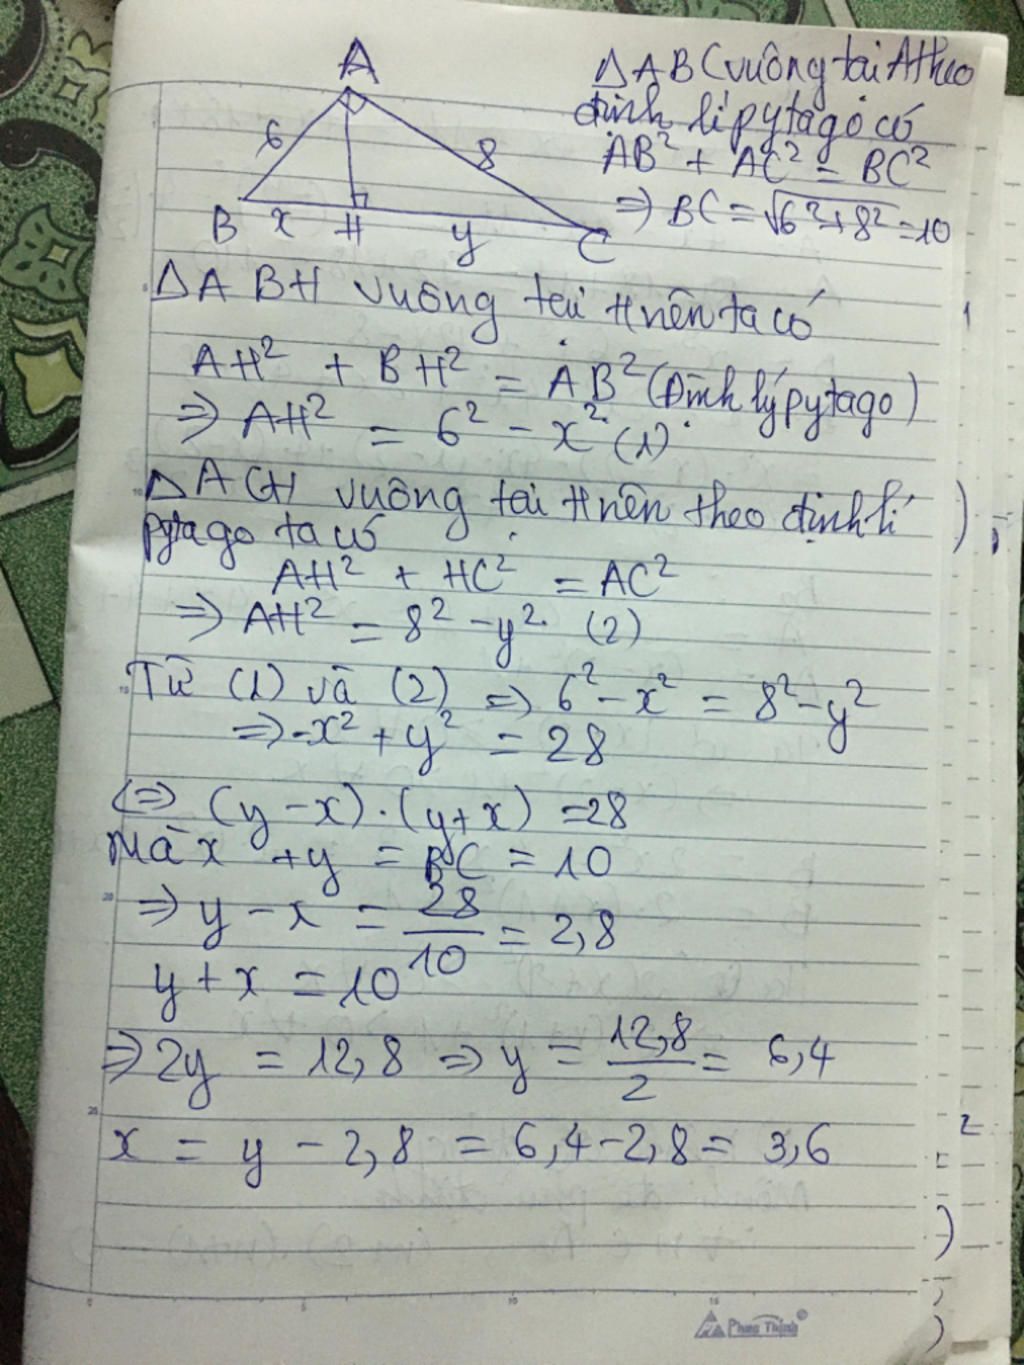 A
6
8
B x H y C
ΔABC vuông tại A theo
định lí pytago có
AB² + AC² = BC²
=> BC = √6²+8² = 10
ΔABH vuông tại H nên ta có
AH² + BH² = AB² (Định lý pytago)
=> AH² = 6² - x² (1)
ΔACH vuông tại H nên theo định lí
pytago ta có
AH² + HC² = AC²
=> AH² = 8² - y² (2)
Từ (1) và (2) => 6² - x² = 8² - y²
=> -x² + y² = 28
<=> (y - x) . (y + x) = 28
Mà x + y = BC = 10
=> y - x = 28/10 = 2,8
y + x = 10
=> 2y = 12,8 => y = 12,8/2 = 6,4
x = y - 2,8 = 6,4 - 2,8 = 3,6
0 5 10 15
Phong Thịnh